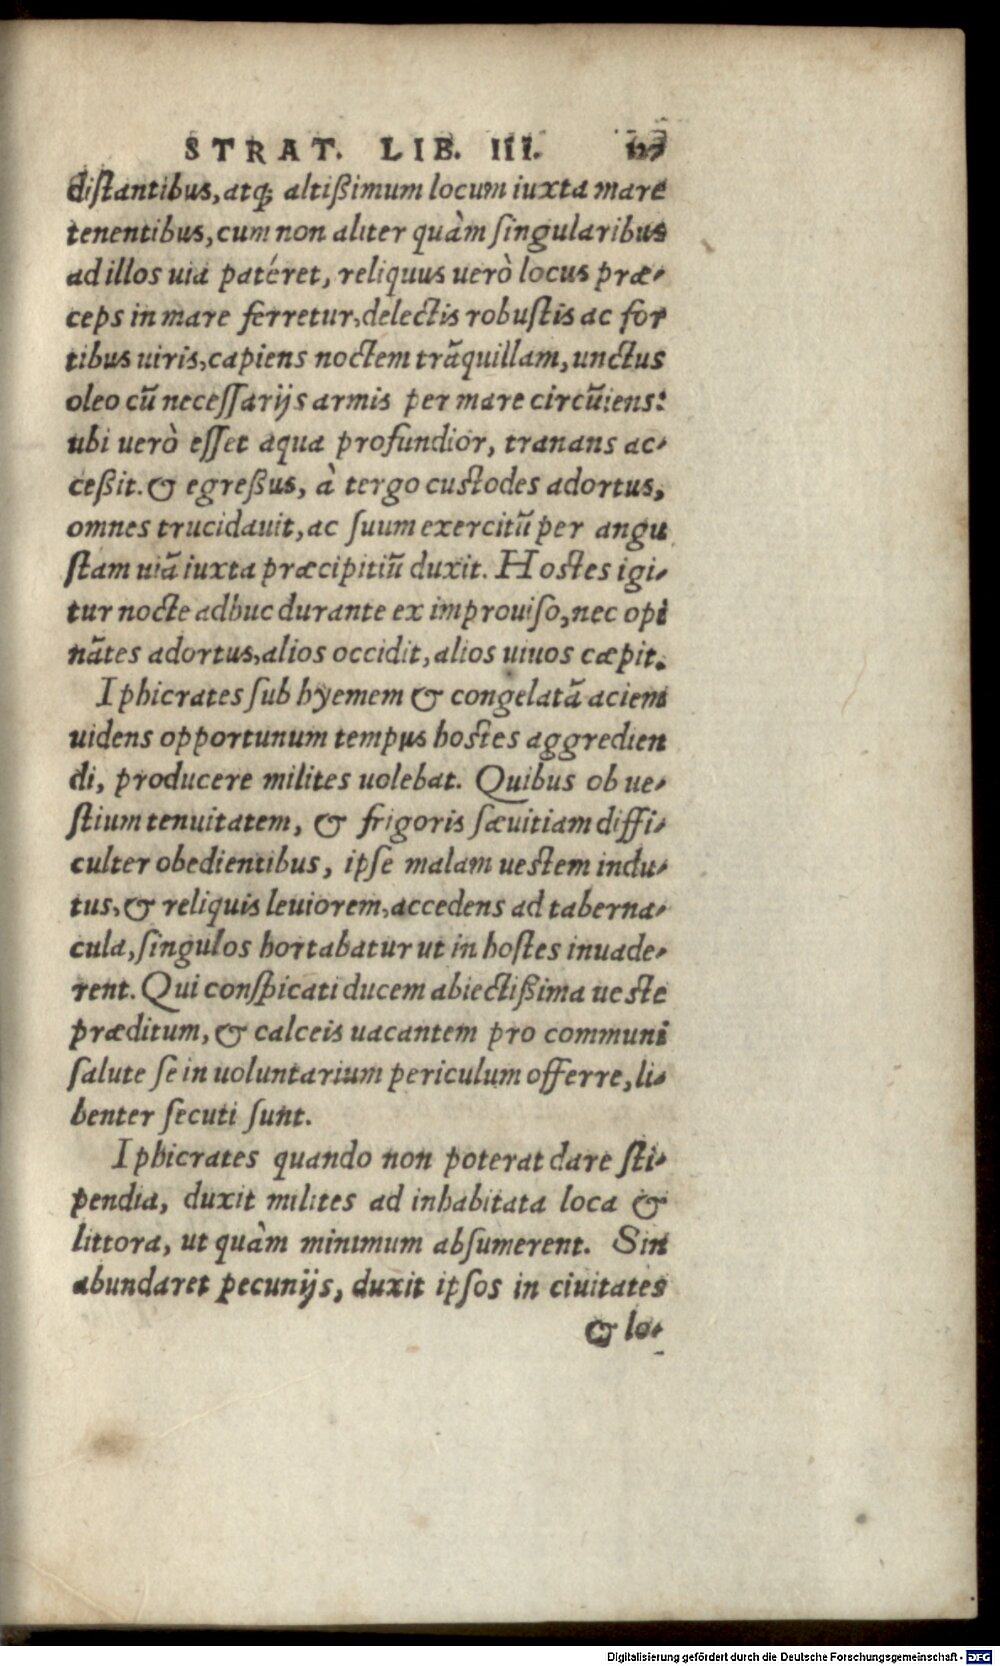 STRAT. LIB. III. 127
distantibus, atq; altißimum locum iuxta mare
tenentibus, cum non aliter quàm singularibus
ad illos uia patéret, reliquus uerò locus præ-
ceps in mare ferretur, delectis robustis ac for
tibus uiris, capiens noctem trãquillam, unctus
oleo cũ necessarijs armis per mare circũiens:
ubi uerò esset aqua profundior, tranans ac-
ceßit. & egreßus, à tergo custodes adortus,
omnes trucidauit, ac suum exercitũ per angu
stam uiã iuxta præcipitiũ duxit. Hostes igi-
tur nocte adhuc durante ex improuiso, nec opi
nãtes adortus, alios occidit, alios uiuos cæpit.
Iphicrates sub hyemem & congelatã aciem
uidens opportunum tempus hostes aggredien
di, producere milites uolebat. Quibus ob ue-
stium tenuitatem, & frigoris sæuitiam diffi-
culter obedientibus, ipse malam uestem indu-
tus, & reliquis leuiorem, accedens ad taberna-
cula, singulos hortabatur ut in hostes inuade-
rent. Qui conspicati ducem abiectißima ueste
præditum, & calceis uacantem pro communi
salute se in uoluntarium periculum offerre, li-
benter secuti sunt.
Iphicrates quando non poterat dare sti-
pendia, duxit milites ad inhabitata loca &
littora, ut quàm minimum absumerent. Sin
abundaret pecunijs, duxit ipsos in ciuitates
& lo-
Digitalisierung gefördert durch die Deutsche Forschungsgemeinschaft - DFG